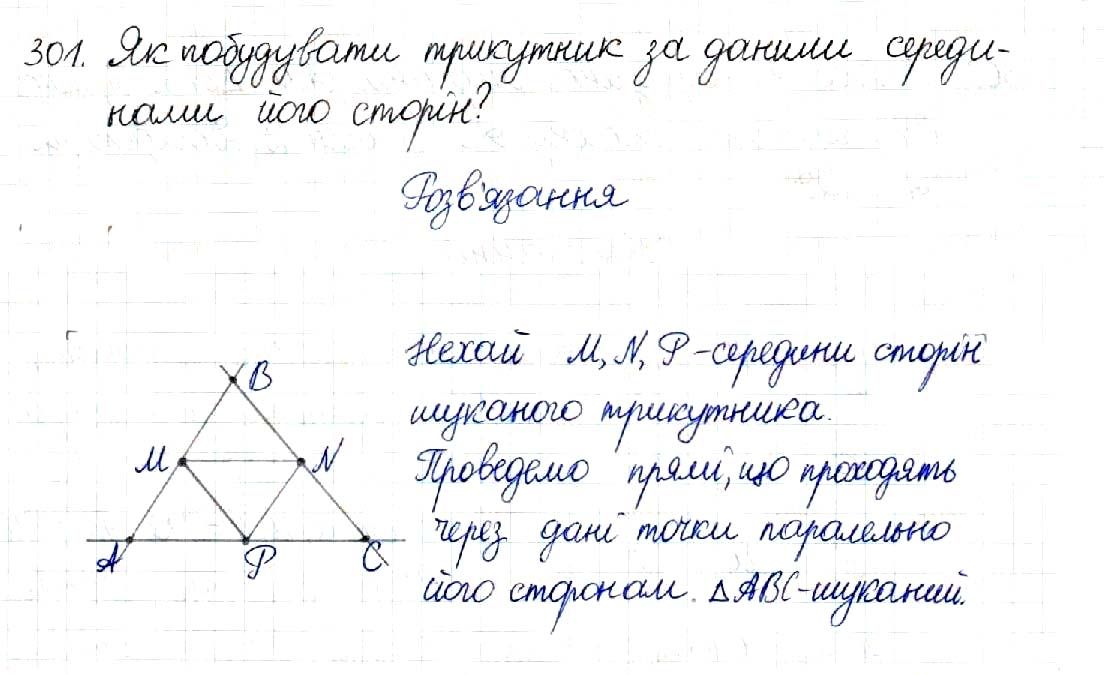 301. Як побудувати трикутник за даними середи-
нами його сторін?
Розв'язання
B
M
N
A
P
C
Нехай M, N, P - середини сторін
шуканого трикутника.
Проведемо прямі, що проходять
через дані точки паралельно
його сторонам. △ABC - шуканий.